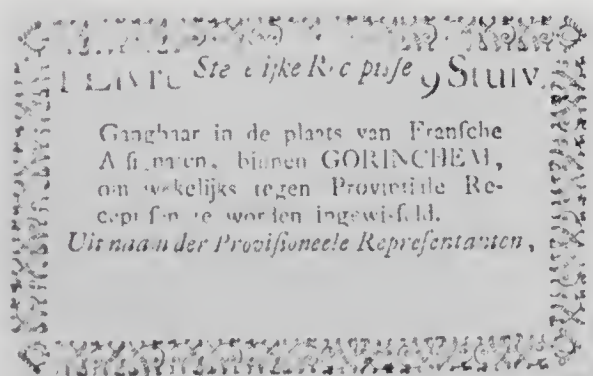 Stedelijke Recepisse 9 Stuiv.
Gangbaar in de plaats van Franſche
Aſſignaten, binnen GORINCHEM,
om wekelijks tegen Provintiale Re-
cepiſſen te worden ingewiſſeld.
Uit naam der Proviſioneele Repreſentanten,